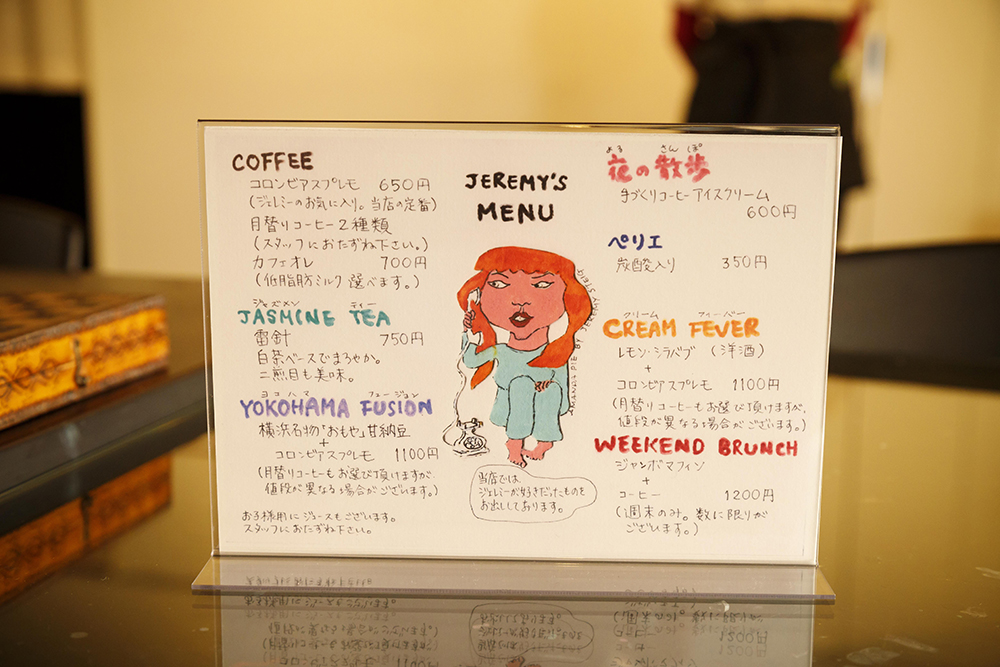 COFFEE
コロンビアスプレモ 650円
(ジェレミーのお気に入り。当店の定番)
月替りコーヒー2種類
(スタッフにおたずね下さい。)
カフェオレ 700円
(低脂肪ミルク選べます。)
ジャズメン ティー
JASMINE TEA
雷針 750円
白茶ベースでまろやか。
二煎目も美味。
ヨコハマ フュージョン
YOKOHAMA FUSION
横浜名物「おもや」甘納豆
+
コロンビアスプレモ 1100円
(月替りコーヒーもお選び頂けますが、
値段が異なる場合がございます。)
お子様用にジュースもございます。
スタッフにおたずね下さい。
JEREMY'S
MENU
当店では
ジェレミーが好きだったものを
お出ししております。
よる さんぽ
夜の散歩
手づくりコーヒーアイスクリーム
600円
ペリエ
炭酸入り 350円
クリーム フィーバー
CREAM FEVER
レモン・シラバブ (洋酒)
+
コロンビアスプレモ 1100円
(月替りコーヒーもお選び頂けますが、
値段が異なる場合がございます。)
WEEKEND BRUNCH
ジャンボマフィン
+
コーヒー 1200円
(週末のみ。数に限りが
ございます。)